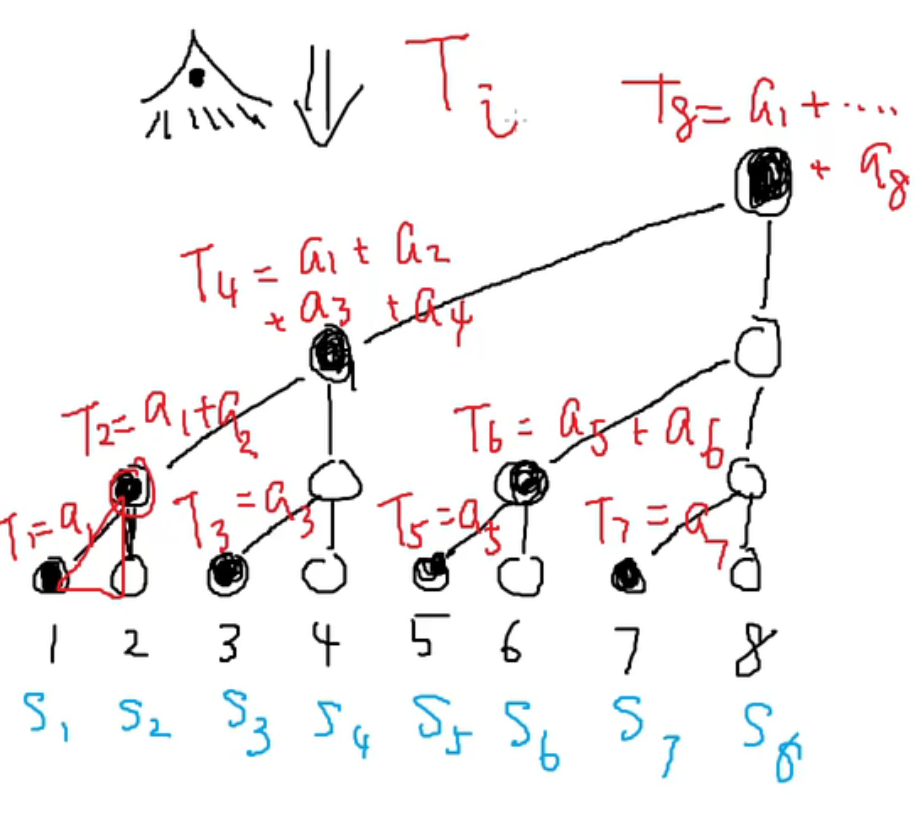 T_i
T_8 = a_1 + ....
+ a_8
T_4 = a_1 + a_2
+ a_3 + a_4
T_2 = a_1 + a_2
T_6 = a_5 + a_6
T_1 = a_1
T_3 = a_3
T_5 = a_5
T_7 = a_7
1 2 3 4 5 6 7 8
S_1 S_2 S_3 S_4 S_5 S_6 S_7 S_8